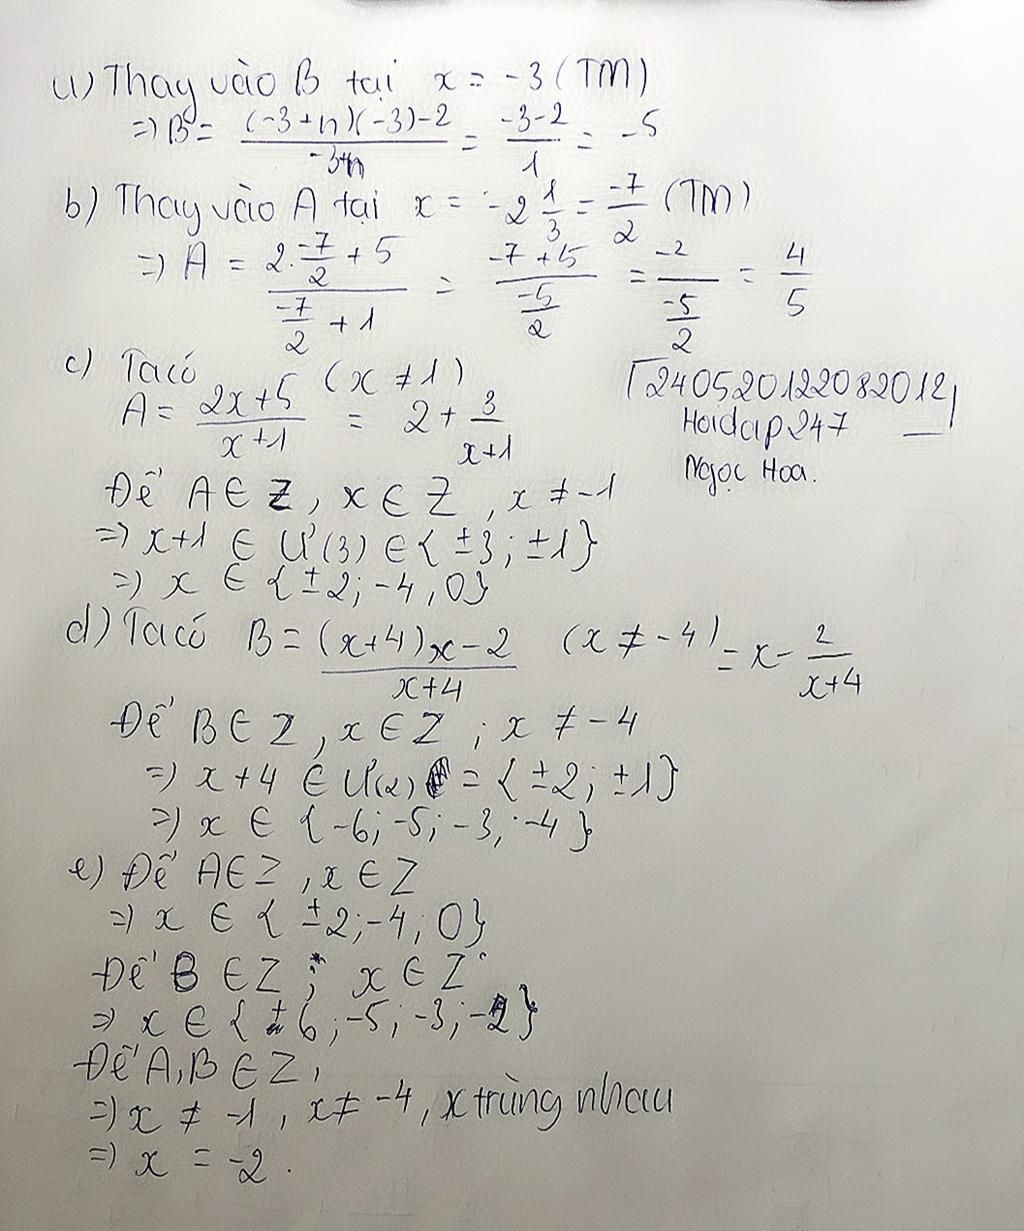 a) Thay vào B tại x = -3 (TM)
=> B = ((-3+4)(-3)-2)/(-3+4) = (-3-2)/1 = -5
b) Thay vào A tại x = -2 1/3 = -7/2 (TM)
=> A = (2.(-7/2)+5)/(-7/2+1) = (-7+5)/(-5/2) = -2/(-5/2) = 4/5
c) Ta có (x ≠ 1)
A = (2x+5)/(x+1) = 2 + 3/(x+1)
240520122082012
Hoidap247
Ngọc Hoa.
Để A ∈ Z, x ∈ Z, x ≠ -1
=> x+1 ∈ Ư(3) ∈ {±3; ±1}
=> x ∈ {±2; -4, 0}
d) Ta có B = ((x+4)x-2)/(x+4) (x ≠ -4) = x - 2/(x+4)
Để B ∈ Z, x ∈ Z; x ≠ -4
=> x+4 ∈ Ư(2) = {±2; ±1}
=> x ∈ {-6; -5; -3; -4}
e) Để A ∈ Z, x ∈ Z
=> x ∈ {±2; -4; 0}
Để B ∈ Z; x ∈ Z
=> x ∈ {±6; -5; -3; -2}
Để A, B ∈ Z,
=> x ≠ -1, x ≠ -4, x trùng nhau
=> x = -2.